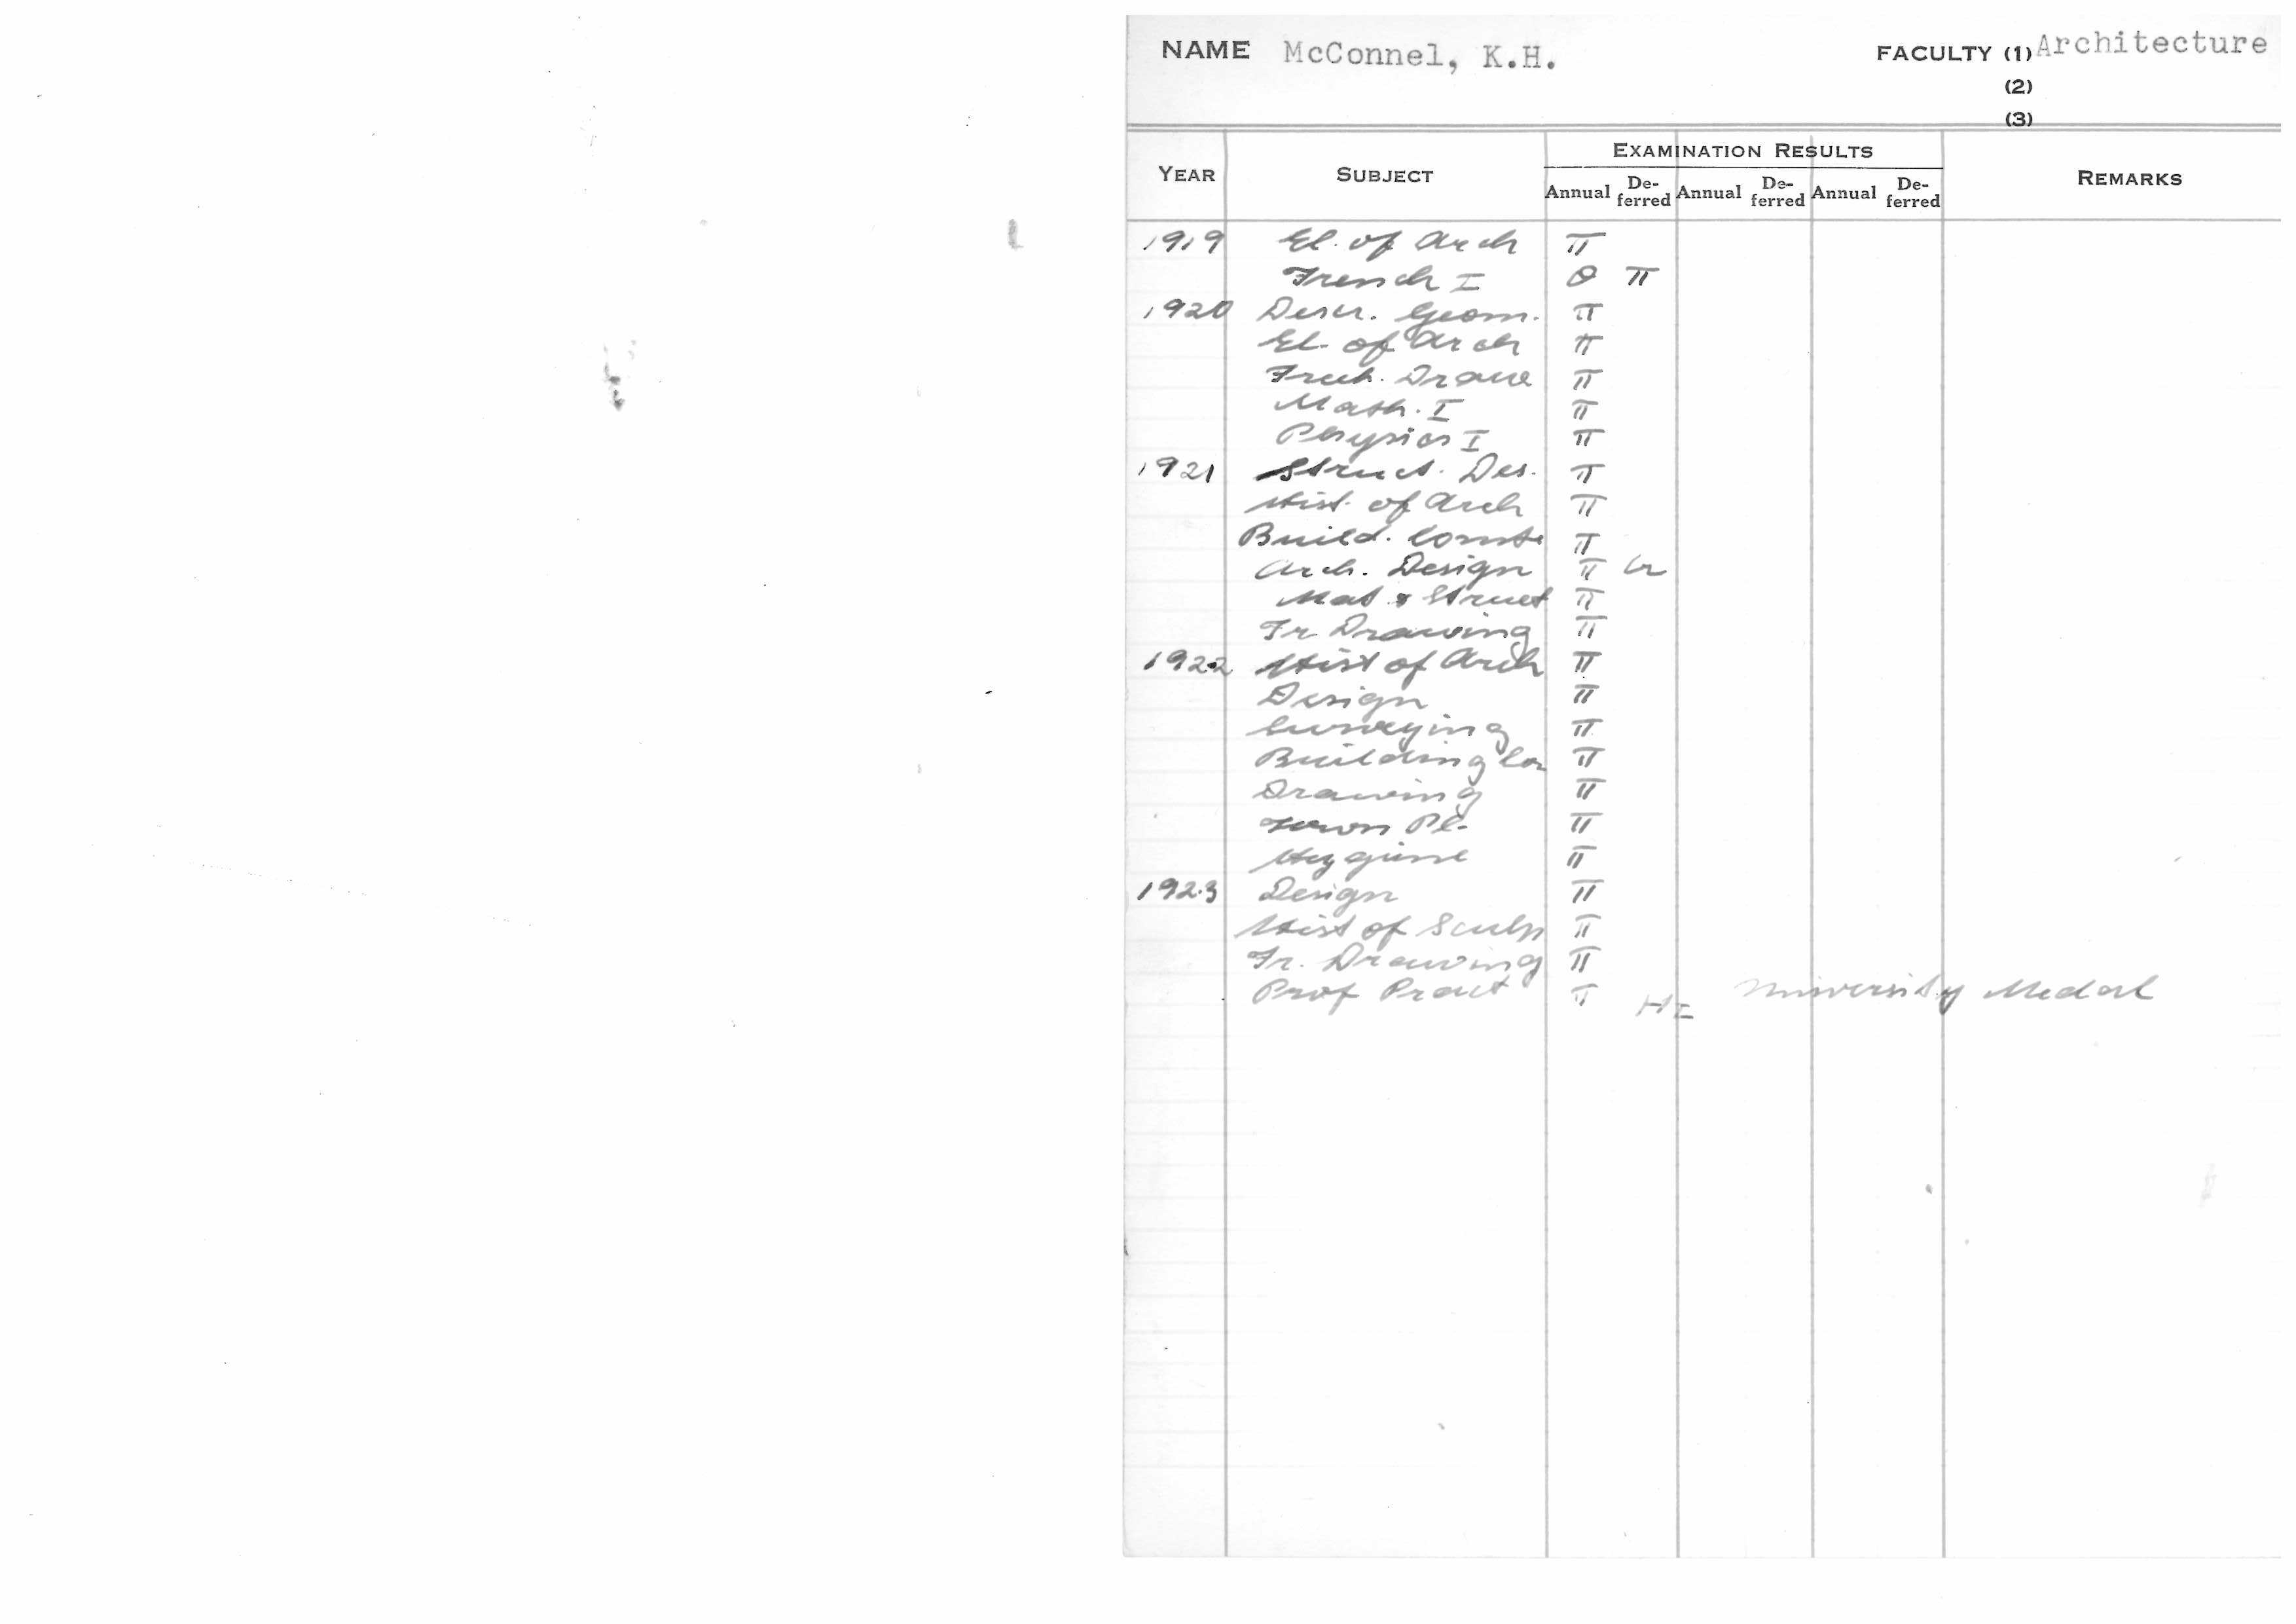 NAME McConnel, K.H. FACULTY (1) Architecture
(2)
(3)
YEAR SUBJECT EXAMINATION RESULTS REMARKS
Annual De-ferred Annual De-ferred Annual De-ferred
1919 El. of Arch π
French I O π
1920 Descr. Geom. π
El. of Arch π
Freeh. Draw π
Math. I π
Physics I π
1921 Struct. Des. π
Hist. of Arch π
Build. Constr π
Arch. Design π Cr
Mat & Struct π
Fr Drawing π
1922 Hist of Arch π
Design π
Surveying π
Building Con π
Drawing π
Town Pl. π
Hygiene π
1923 Design π
Hist of Sculp π
Fr. Drawing π
Prof Pract π HI University Medal